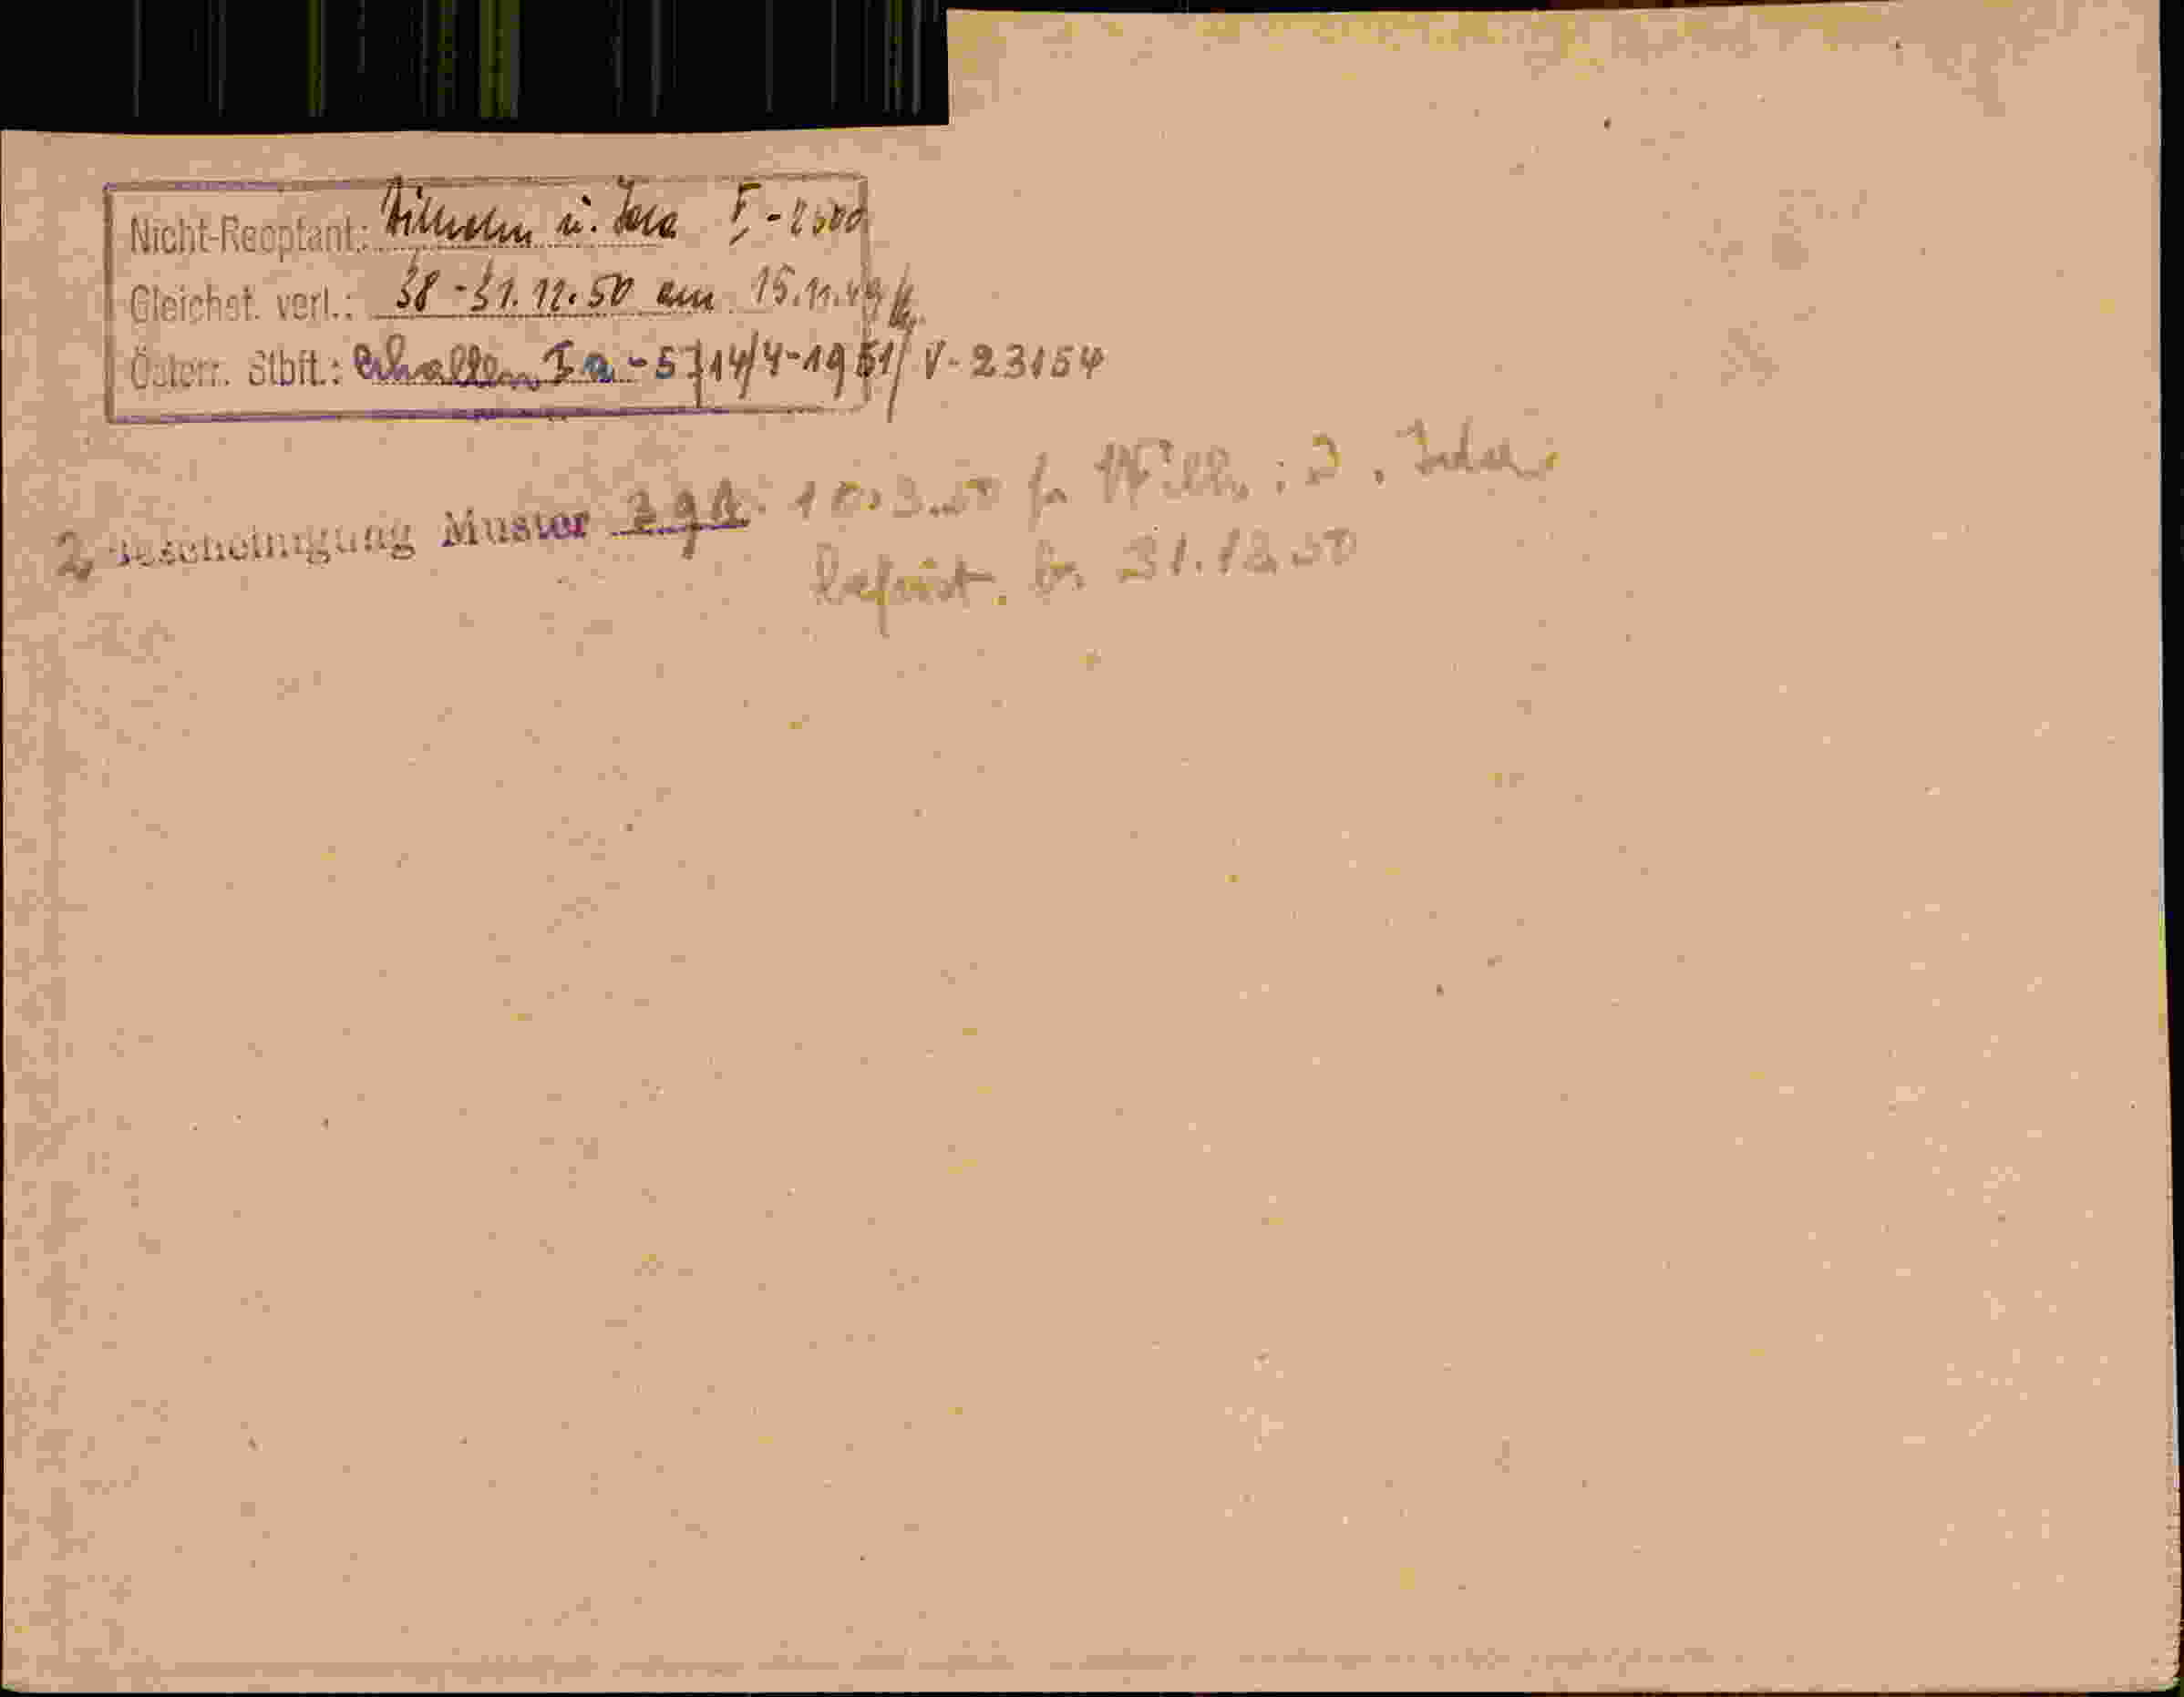 Nicht-Reoptant: Wilhelm u. I - 2500
Gleichst. verl.: 38 - 31.12.50 am 15.11.49
Österr. Stbft.: erhalten Ia - 5714/4-1951/ V - 23154
2 Bescheinigung Muster 10.3.50
befrist. bis 31.12.50